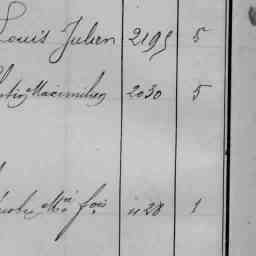 Louis Julien 2195 5
Maximilien 2030 5
M.ie 1128 1